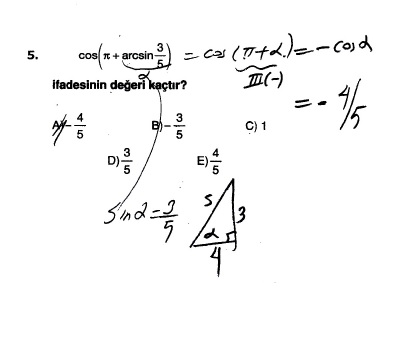 5. cos(π + arcsin 3/5) = cos(π+α) = -cosα
α
III(-)
ifadesinin değeri kaçtır?
= - 4/5
A) - 4/5 B) - 3/5 C) 1
D) 3/5 E) 4/5
Sinα = 3/5
5
3
α
4